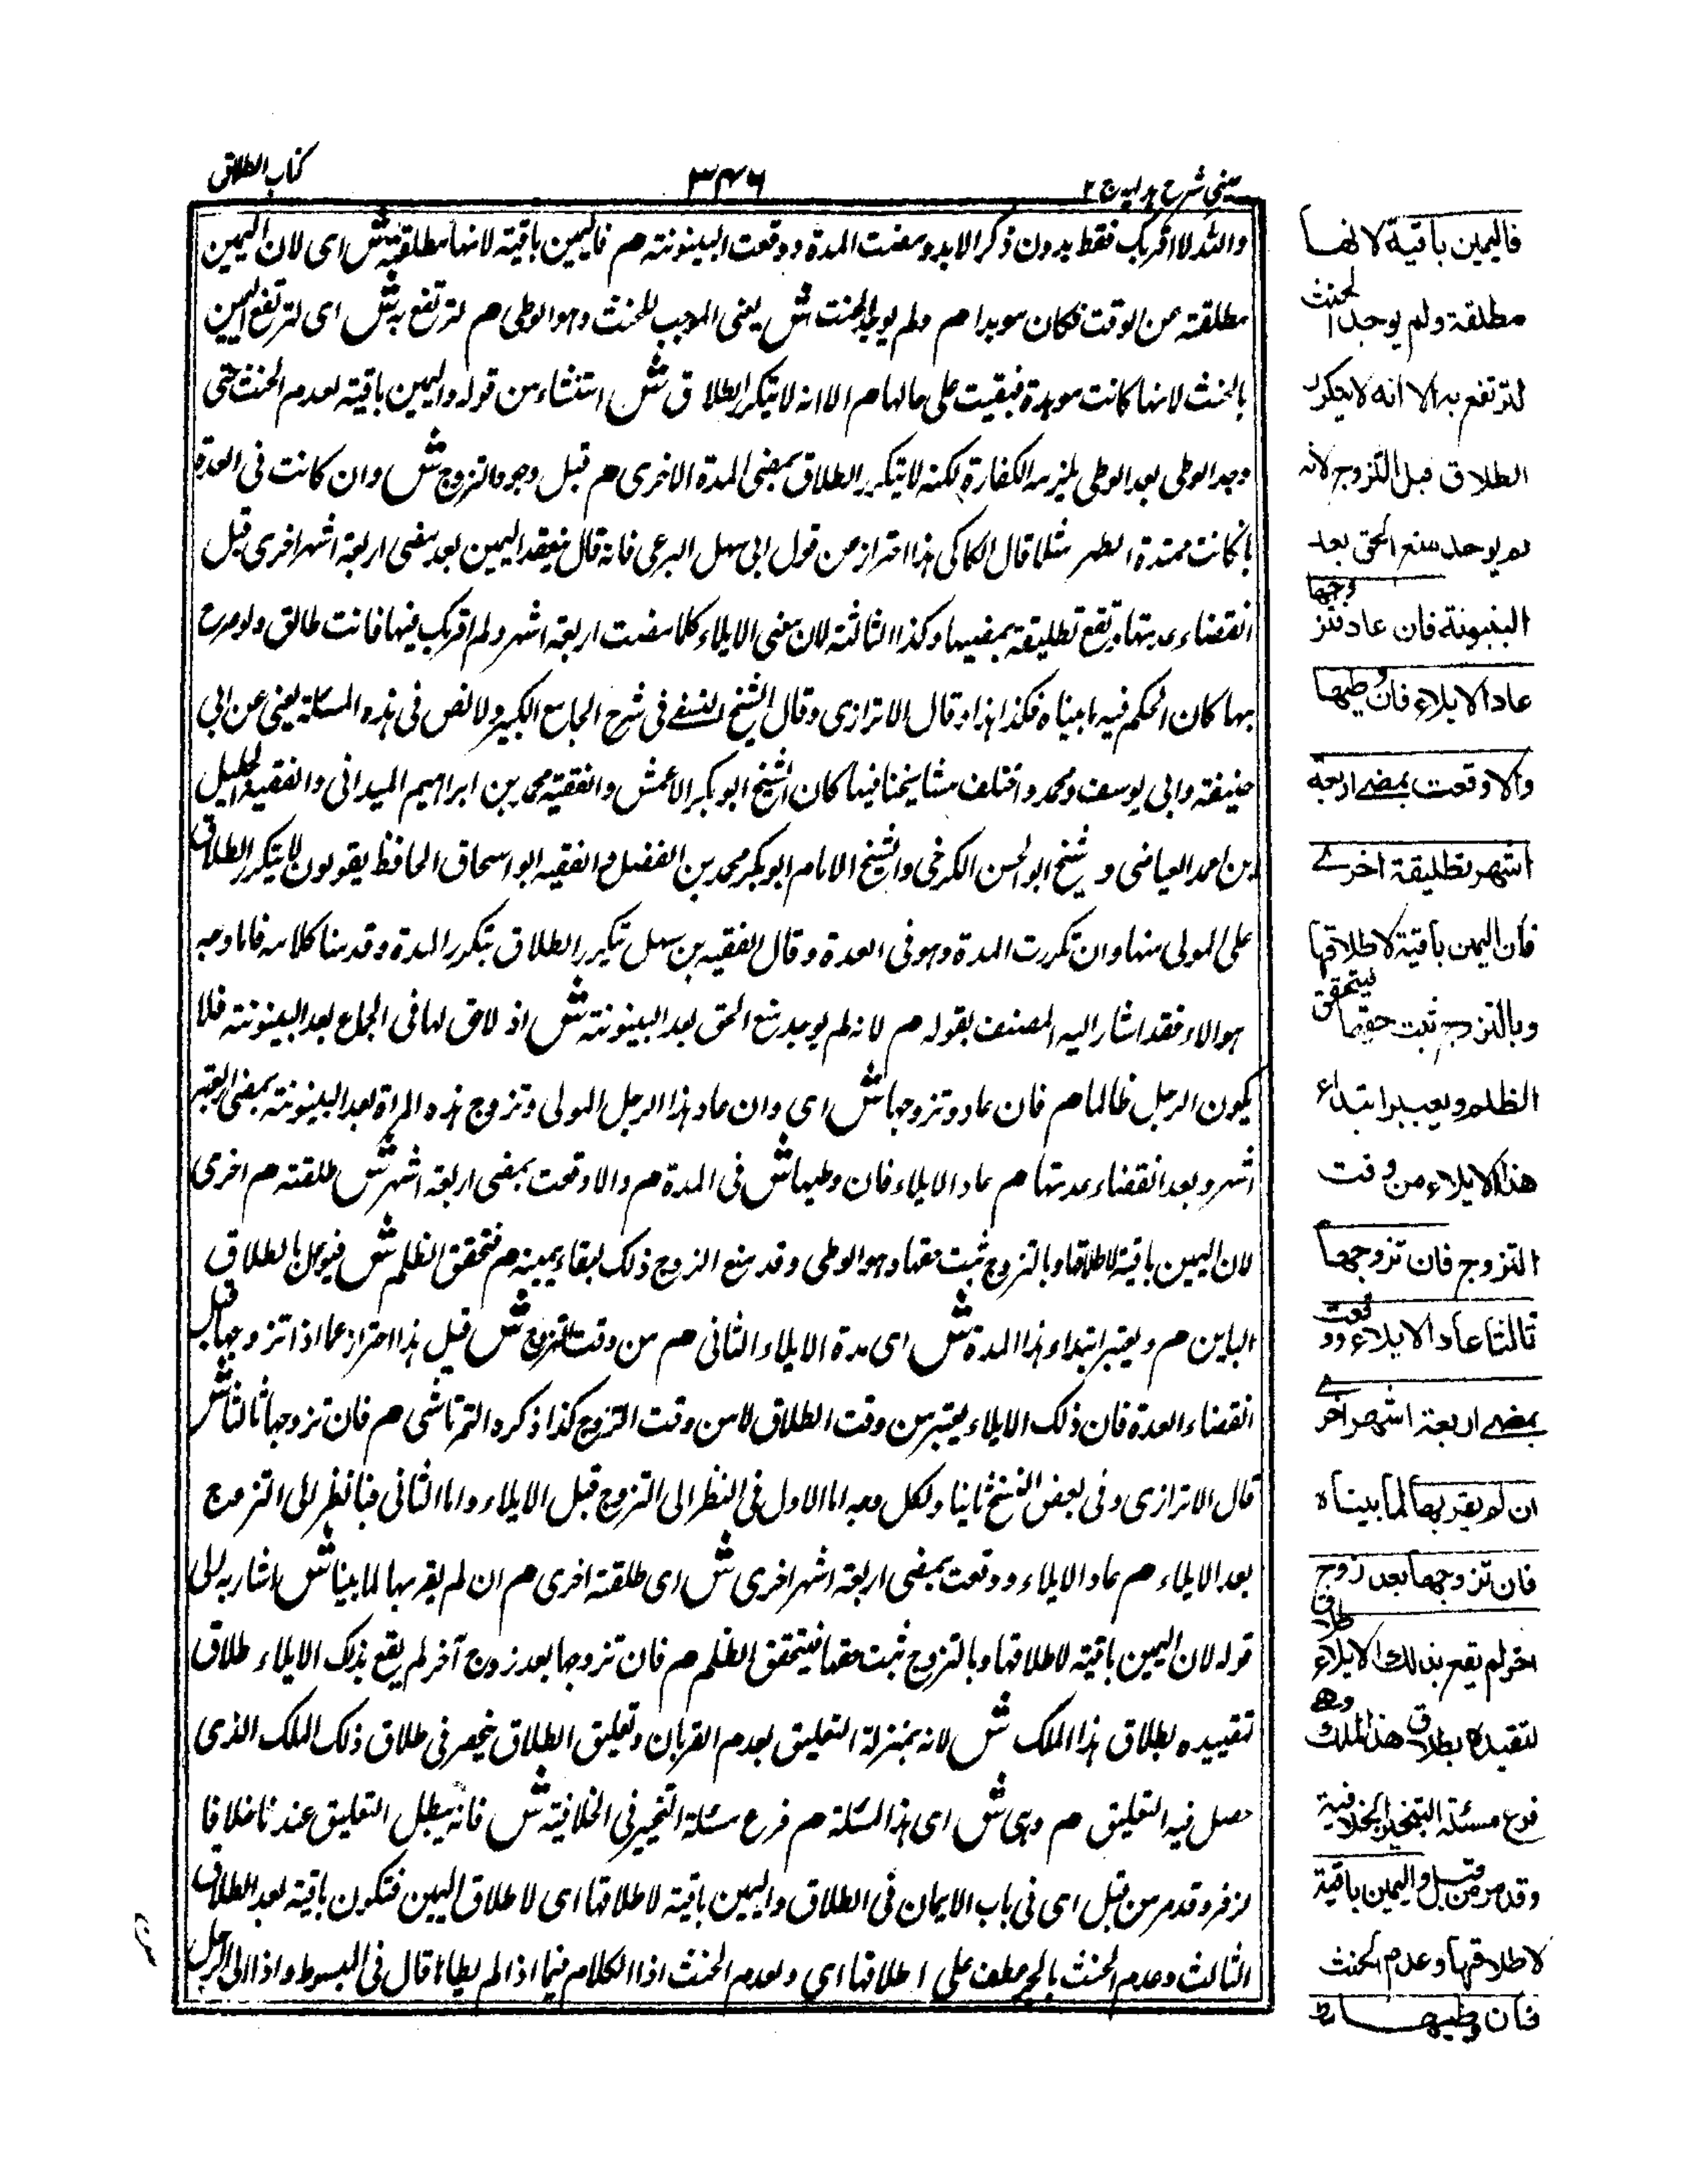 عینی شرح ہدایہ ج ۲
۳۴۶
کتاب الطلاق
والله لا اقربک فقط بدون ذکر الابد ومضت المدة ووقعت البینونته م فالیمین باقیته لانها مطلقته ش ای لان الیمین
مطلقته عن الوقت فکان موبدا م ولم یوجد الحنث ش یعنی الموجب للحنث وهو الوطی م لترتفع به ش ای لترتفع الیمین
بالحنث لانها کانت موبدة فبقیت علی حالها م الا انه لا یتکرر الطلاق ش استثناء من قوله والیمین باقیته لعدم الحنث حتی
وجد الوطی بعد الوطی یلزمه الکفارة لکنه لا یتکرر الطلاق بمضی المدة الاخری م قبل وجود التزوج ش وان کانت فی العدة
با کانت ممتدة الطهر مثلا قال الکاکی هذا احتراز من قول ابی سهل البرعی فانه قال ینعقد الیمین بعد مضی اربعة اشهر اخری قبل
انقضاء عدتها وتقع تطلیقة بمضیها وکذا الثالثة لان معنی الایلاء کلما مضت اربعة اشهر ولم اقربک فیها فانت طالق ولو صرح
بها کان الحکم فیه ما بیناه فکذا هذا وقال الاترازی وقال الشیخ النسفے فی شرح الجامع الکبیر ولا نص فی هذه المسئلة یعنی عن ابی
حنیفته وابی یوسف ومحمد واختلف مشایخنا فیها کان الشیخ ابو بکر الاعمش والفقیه محمد بن ابراهیم المیدانی والفقیه الجلیل
بن احمد العیاضی و شیخ ابو الحسن الکرخی والشیخ الامام ابو بکر محمد بن الفضل والفقیه ابو اسحاق الحافظ یقولون لا یتکرر الطلاق
علی المولی منها وان تکررت المدة وهو فی العدة وقال الفقیه بن سهل تیکرر الطلاق بتکرر المدة وقد مناکلامه فاما وجه
هوالاء فقد اشار الیه المصنف بقوله م لانه لم یوجد منع الحق بعد البینونته ش اذ لا حق لها فی الجماع بعد البینونته فلا
یکون الرجل ظالما م فان عاد وتزوجها ش ای وان عاد هذا الرجل المولی وتزوج هذه المراة بعد البینونته بمضی اربعة
اشهر وبعد انقضاء عدتها م عاد الایلاء فان وطیها ش فی المدة م والا وقعت بمضی اربعة اشهر ش طلقته م اخری
لان الیمین باقیة لاطلاقها وبالتزوج ثبت حقها وهو الوطی وقد منع الزوج ذلک لبقاء یمینه م فتحقق الظلم ش فیزال بالطلاق
الباین م ویعتبر ابتداء هذا المدة ش ای مدة الایلاء الثانی م من وقت التزوج ش قیل هذا احتراز عما اذا تزوجها قبل
انقضاء العدة فان ذلک الایلاء یعتبر من وقت الطلاق لا من وقت التزوج کذا ذکره التمرتاشی م فان تزوجها ثالثا ش
قال الاترازی وفی بعض النسخ ثانیا ولکل وجه اما الاول فی النظر الی التزوج قبل الایلاء واما الثانی فبالنظر الی التزوج
بعد الایلاء م عاد الایلاء ووقعت بمضی اربعة اشهر اخری ش ای طلقته اخری م ان لم یقربها لما بینا ش اشار به الی
قوله لان الیمین باقیته لاطلاقها وبالتزوج ثبت حقها فیتحقق الظلم م فان تزوجها بعد زوج آخر لم یقع بذلک الایلاء طلاق
تقییده بطلاق هذا الملک ش لانه بمنزلة التعلیق بعدم القربان وتعلیق الطلاق ینحصر فی طلاق ذلک الملک الذی
حصل فیه التعلیق م وهی ش ای هذا المسئلة م فرع مسئلة التنجیز فی الخلافیة ش فانه یبطل التعلیق عندنا خلافا
لزفر وقد مر من قبل ای فی باب الایمان فی الطلاق والیمین باقیة لاطلاقها ای لاطلاق الیمین فتکون باقیة بعد الطلاق
الثالث وعدم الحنث بالجر عطف علی اطلاقها ای ولعدم الحنث اذا الکلام فیما اذا لم یطاها قال فی المبسوط واذا الی الرجل
فالیمین باقیة لانها
مطلقة ولم یوجد الحنث
لترتفع به الا انه لا یتکرر
الطلاق قبل التزوج لانه
لم یوجد منع الحق بعد
البینونة فان عاد فتزوجها
عاد الایلاء فان وطیها
والا وقعت بمضے اربعة
اشهر تطلیقة اخرے
فان الیمین باقیة لاطلاقها
وبالتزوج ثبت حقها فیتحقق
الظلم ویعتبر ابتداء
هذا الایلاء من وقت
التزوج فان تزوجها
ثالثا عاد الایلاء ووقعت
بمضے اربعة اشهر اخرے
ان لم یقربها لما بیناه
فان تزوجها بعد زوج
اخر لم یقع بذلک الایلاء طلاق
لتقیده بطلاق هذا الملک وهے
فرع مسئلة التنجیز الخلافیة
وقد مر من قبل والیمین باقیة
لاطلاقها وعدم الحنث
فان وطیها